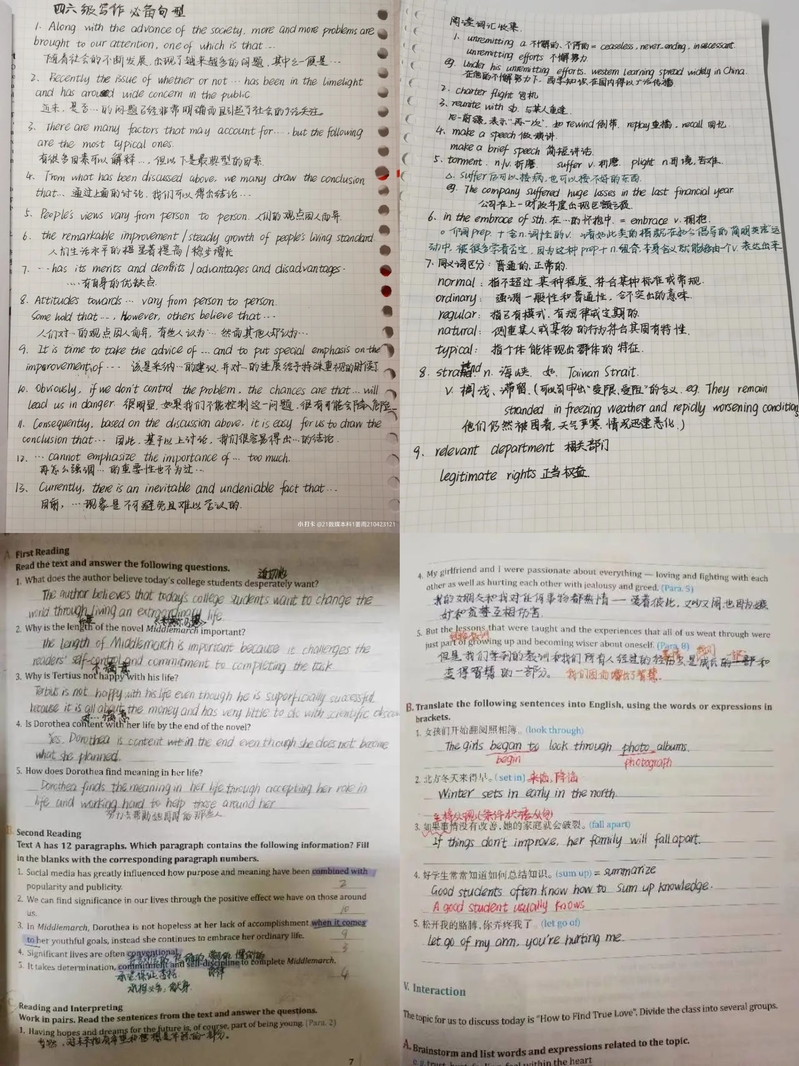 四六级写作必备句型
1. Along with the advance of the society, more and more problems are
brought to our attention, one of which is that ...
随着社会的不断发展,出现了越来越多的问题,其中之一便是...
2. Recently the issue of whether or not ... has been in the limelight
and has aroud wide concern in the public
近来,是否...的问题已经非常明确而且引起了社会的广泛关注。
3. There are many factors that may account for ..., but the following
are the most typical ones.
有很多因素可以解释...,但以下是最典型的因素
4. From what has been discussed above, we many draw the conclusion
that... 通过上面的讨论,我们可以得出结论...
5. People's views vary from person to person. 人们的观点因人而异.
6. the remarkable improvement / steady growth of people's living standard
人们生活水平的显著提高/稳步增长
7. ...has its merits and demfits / advantages and disadvantages.
...有自身的优缺点.
8. Attitudes towards ... vary from person to person.
Some hold that ..., However, others believe that ...
人们对...的观点因人而异,有些人认为...然而其他人却认为...
9. It is time to take the advice of ... and to put special emphasis on the
improvement of ... 该是采纳...的建议,并对...的进展给予特殊重视的时候了
10. Obviously, if we don't control the problem, the chances are that ... will
lead us in danger. 很明显,如果我们不能控制这一问题,很有可能会陷入危险
11. Consequently, based on the discussion above, it is easy for us to draw the
conclusion that ... 因此,基于以上讨论,我们很容易得出...的结论.
12. ... cannot emphasize the importance of ... too much.
再怎么强调...的重要性也不为过...
13. Currently, there is an inevitable and undeniable fact that ...
目前,...现象是不可避免且难以否认的.
阅读词汇收集.
1. unremitting a. 不懈的,不停的 = ceaseless, never ending, incessant.
unremitting efforts 不懈努力
eg. Under his unremitting efforts, western learning spread widely in China.
在他的不懈努力下,西学知识在国内得以广泛传播
2. charter flight 包机
3. reunite with sb. 与某人重逢.
re-前缀,表示"再一次",如 rewind 倒带, replay 重播, recall 回忆
4. make a speech 做演讲.
make a brief speech 简短讲话.
5. torment. n./v. 折磨. suffer v. 折磨. plight n. 困境,苦难.
△ suffer后可以接病,也可以接不好的东西.
eg. The company suffered huge losses in the last financial year.
公司在上一财政年度出现巨额亏损
6. in the embrace of sth. 在...的怀抱中. = embrace v. 拥抱.
7. 同义词区分:普通的,正常的.
normal: 指不超过某种程度,符合某种标准或常规.
ordinary: 强调一般性和普通性,含不突出的意味.
regular: 指已有模式,有规律或定期的.
natural: 侧重某人或某物的行为符合其固有特性.
typical: 指个体能体现出群体的特征.
8. strait n. 海峡. 如. Taiwan Strait.
strand
v. 搁浅、滞留.(可以引申出"受限,受阻"的含义. eg. They remain
stranded in freezing weather and repidly worsening condition
他们仍然被困着,天气严寒,情况迅速恶化.)
9. relevant department 相关部门
legitimate rights 正当权益
小打卡 @21数媒本科1姜雨210423121
First Reading
Read the text and answer the following questions.
1. What does the author believe today's college students desperately want?
The author believes that today's college students want to change the
world through living an extraordinary life.
2. Why is the length of the novel Middlemarch important?
The length of Middlemarch is important because it challenges the
readers' self-control and commitment to completing the task
3. Why is Tertius not happy with his life?
Tertius is not happy with his life even though he is superficially successful
because it is all about the money and has very little to do with scientific discov
4. Is Dorothea content with her life by the end of the novel?
Yes. Dorothea is content in the end even though she does not become
what she planned.
5. How does Dorothea find meaning in her life?
Dorothea finds the meaning in her life through accepting her role in
life and working hard to help those around her.
Second Reading
Text A has 12 paragraphs. Which paragraph contains the following information? Fill
in the blanks with the corresponding paragraph numbers.
1. Social media has greatly influenced how purpose and meaning have been combined with
popularity and publicity. 2
2. We can find significance in our lives through the positive effect we have on those around
us. 10
3. In Middlemarch, Dorothea is not hopeless at her lack of accomplishment when it comes
to her youthful goals, instead she continues to embrace her ordinary life. 9
4. Significant lives are often conventional. 3
5. It takes determination, commitment and self-discipline to complete Middlemarch. 4
Reading and Interpreting
Work in pairs. Read the sentences from the text and answer the questions.
1. Having hopes and dreams for the future is, of course, part of being young. (Para. 2)
7
4. My girlfriend and I were passionate about everything — loving and fighting with each
other as well as hurting each other with jealousy and greed. (Para. 5)
5. But the lessons that were taught and the experiences that all of us went through were
just part of growing up and becoming wiser about oneself. (Para. 8)
B. Translate the following sentences into English, using the words or expressions in
brackets.
1. 女孩们开始翻阅照相簿。(look through)
The girls began to look through photo albums.
begin photograph
2. 北方冬天来得早。(set in) 来临,降临
Winter sets in early in the north.
3. 如果事情没有改善,她的家庭就会破裂。(fall apart)
If things don't improve, her family will fall apart.
4. 好学生常常知道如何总结知识。(sum up) = summarize
Good students often know how to sum up knowledge.
A good student usually knows
5. 松开我的胳膊,你弄疼我了。(let go of)
let go of my arm, you're hurting me.
V. Interaction
The topic for us to discuss today is "How to Find True Love". Divide the class into several groups.
A. Brainstorm and list words and expressions related to the topic.